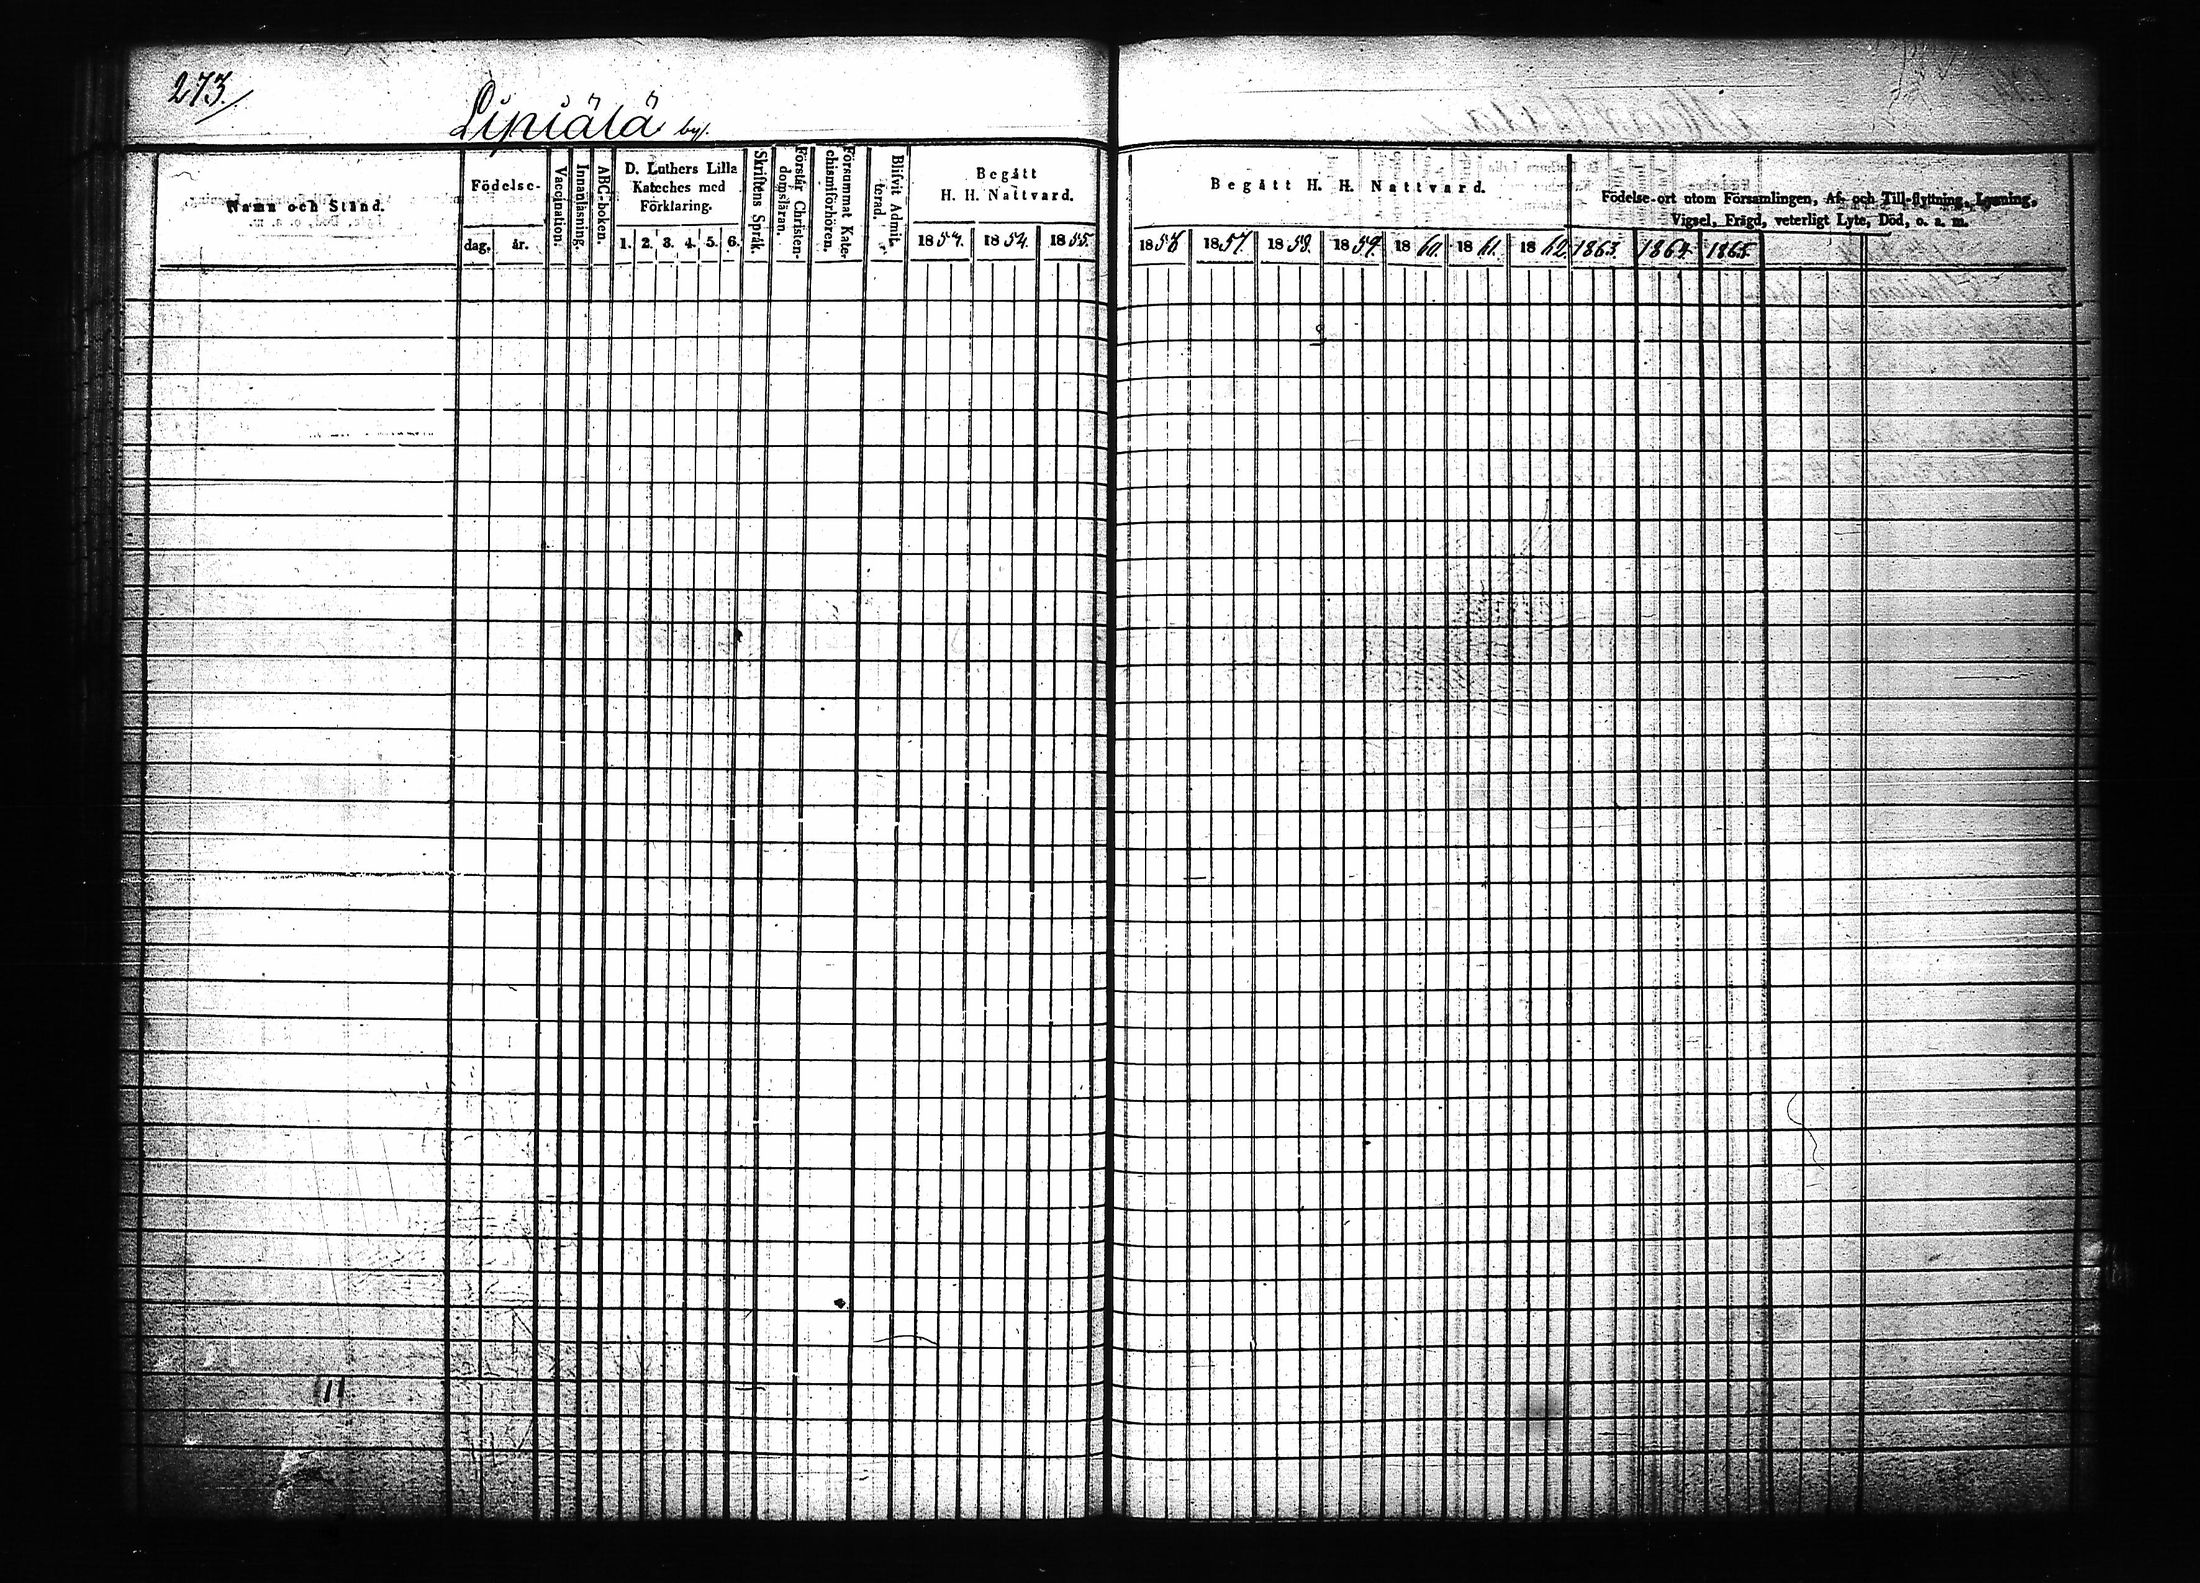 273.
Lipiälä by.
Namn och Stånd.
Födelse-
dag.
år.
Vaccination.
Innanläsning.
ABC-boken.
D. Luthers Lilla
Kateches med
Förklaring.
1. 2. 3. 4. 5. 6.
Skriftens Språk.
Förstår Christen-
domsläran.
Försummat Kate-
chismiförhören.
Blifvit Admit-
terad.
Begått
H. H. Nattvard.
1853. 1854. 1855.
Begått H. H. Nattvard.
1856 1857. 1858. 1859. 1860. 1861. 1862. 1863. 1864. 1865.
Födelse-ort utom Församlingen, Af- och Till-flyttning, Lysning,
Vigsel, Frägd, veterligt Lyte, Död, o. s. m.